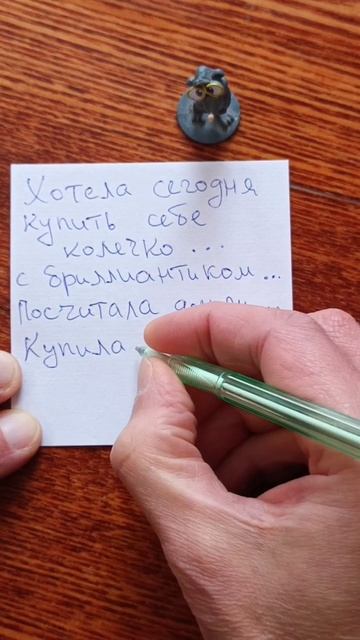 Хотела сегодня
купить себе
колечко ...
с бриллиантиком...
Посчитала
Купила